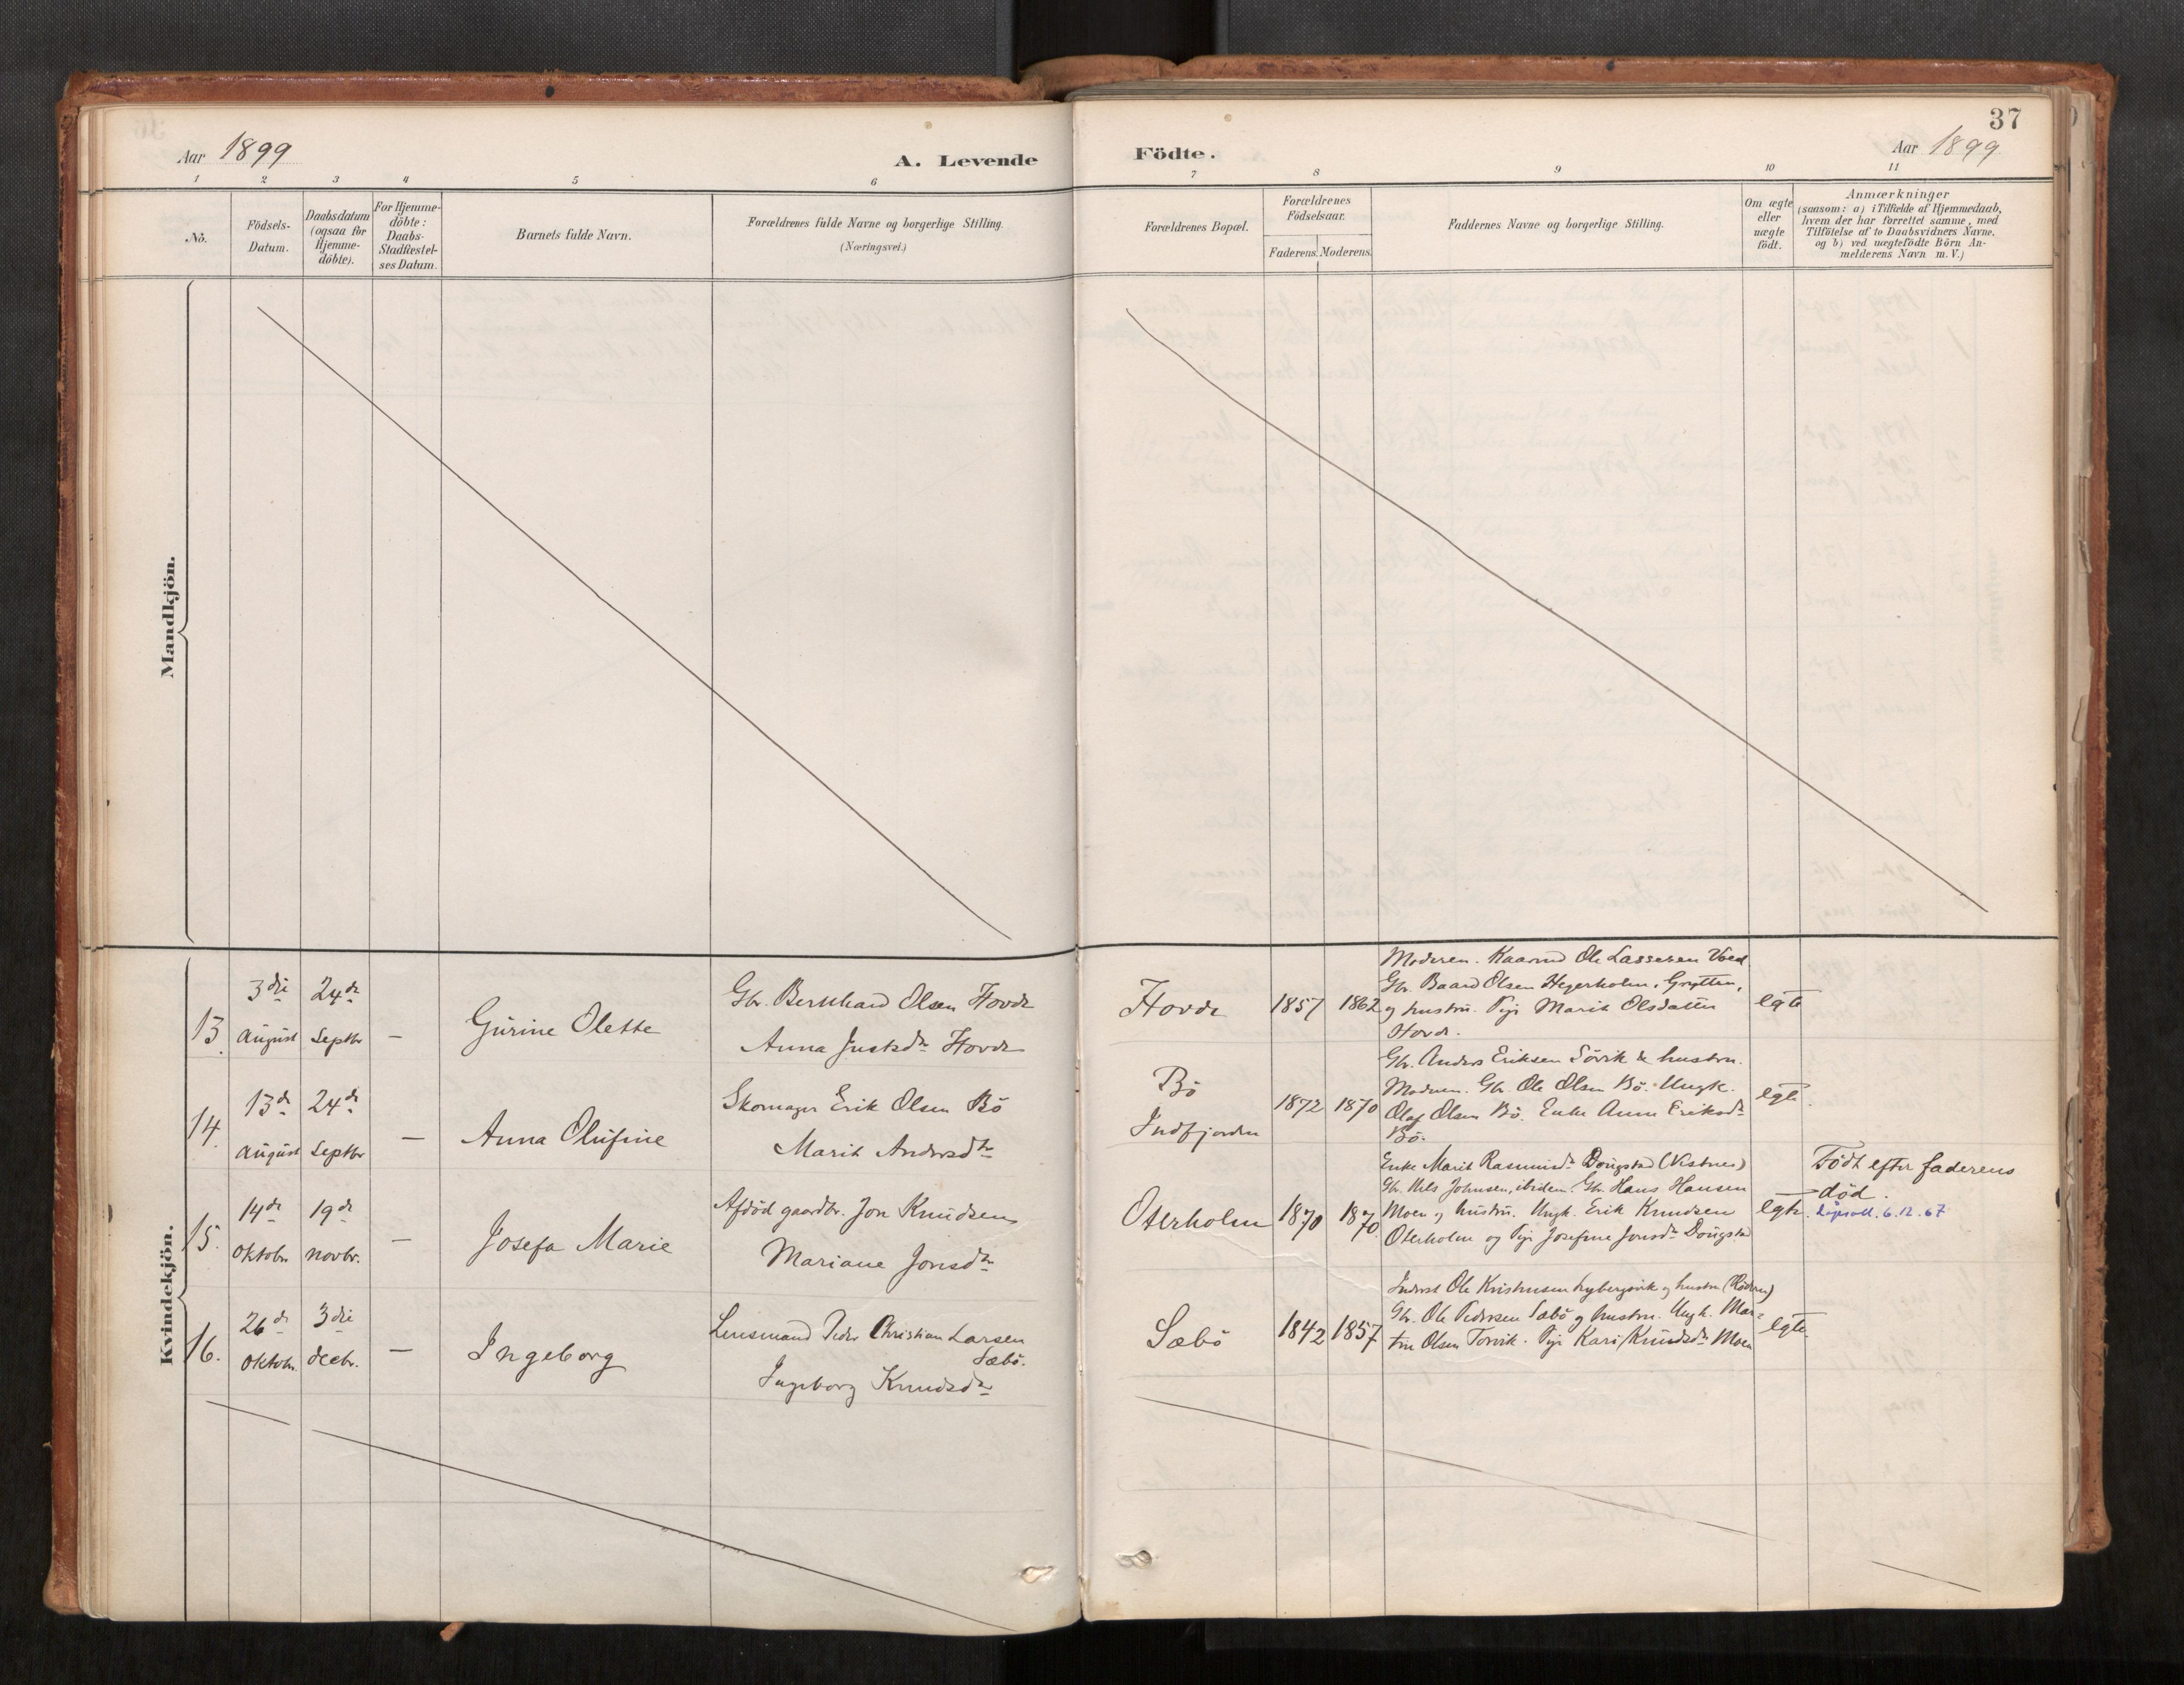 37
Aar 1899
A. Levende
Födte.
Aar 1899
1 2 3 4 5 6 7 8 9 10 11
Nö.
Födsels-
Datum.
Daabsdatum
(ogsaa for
Hjemme-
döbte).
For Hjemme-
döbte:
Daabs-
Stadfæstel-
ses Datum.
Barnets fulde Navn.
Forældrenes fulde Navne og borgerlige Stilling.
(Næringsvei.)
Forældrenes Bopæl.
Forældrenes
Födselsaar.
Faderens. Moderens.
Faddernes Navne og borgerlige Stilling.
Om ægte
eller
uægte
födt.
Anmærkninger
(saasom: a) i Tilfælde af Hjemmedaab,
hvem der har forrettet samme, med
Tilföielse af to Daabsvidners Navne,
og b) ved uægtefödte Börn An-
melderens Navn m. V.)
Mandkjön.
Kvindekjön.
13.
3die
August
24de
Septbr
—
Gurine Olette
Gbr. Bernhard Olsen Hovde
Anna Justsdr Hovde
Hovde
1857
1862
Moderen. Kaarmd Ole Lassesen Voed
Gbr. Baard Olsen Hegerholm, Grytten,
og hustru. Pige Marit Olsdatter
Hovde.
egte
14.
13de
August
24de
Septbr
—
Anna Olufine
Skomager Erik Olsen Bö
Marit Andersdtr
Bö
Indfjorden
1872
1870
Gbr. Anders Eriksen Sövik & hustru.
Moderen. Gbr. Ole Olsen Bö. Ungk.
Olaf Olsen Bö. Enke Anne Eriksdr
Bö.
egte.
15.
14de
Oktobr.
19de
Novbr.
—
Josefa Marie
Afdöd gaardbr. Jon Knudsen
Mariane Jonsdtr
Oterholm
1870
1870.
Enke Marit Rasmusdr Dougstad (Vestnes)
Gbr. Nils Johnsen, ibidem. Gbr. Hans Hansen
Moen og hustru. Ungk. Erik Knudsen
Oterholm og Pige Josefine Jonsdr Dougstad
egte.
Födt efter faderens
död.
6.12.67
16.
26de
Oktobr.
3die
Decbr.
—
Ingeborg
Lensmand Peder Christian Larsen
Sæbö.
Ingeborg Knudsdtr
Sæbö
1842
1857
Inderst Ole Kristensen Nybergsvik og hustru (Röden)
Gbr. Ole Pedersen Sæbö og hustru. Ungk. Mar-
tin Olsen Torvik. Pige Kari Knudsdr Moen
egte.